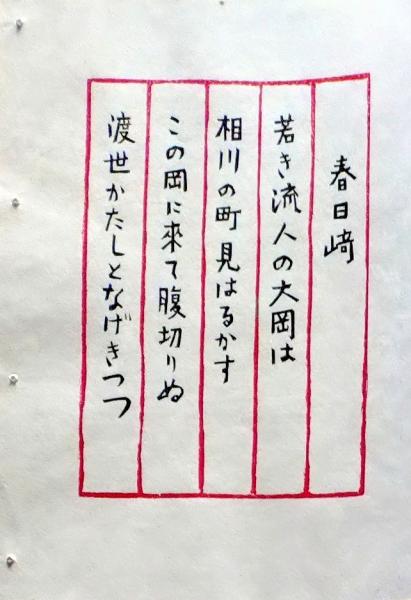 春日﨑
若き流人の大岡は
相川の町見はるかす
この岡に來て腹切りぬ
渡世かたしとなげきつつ